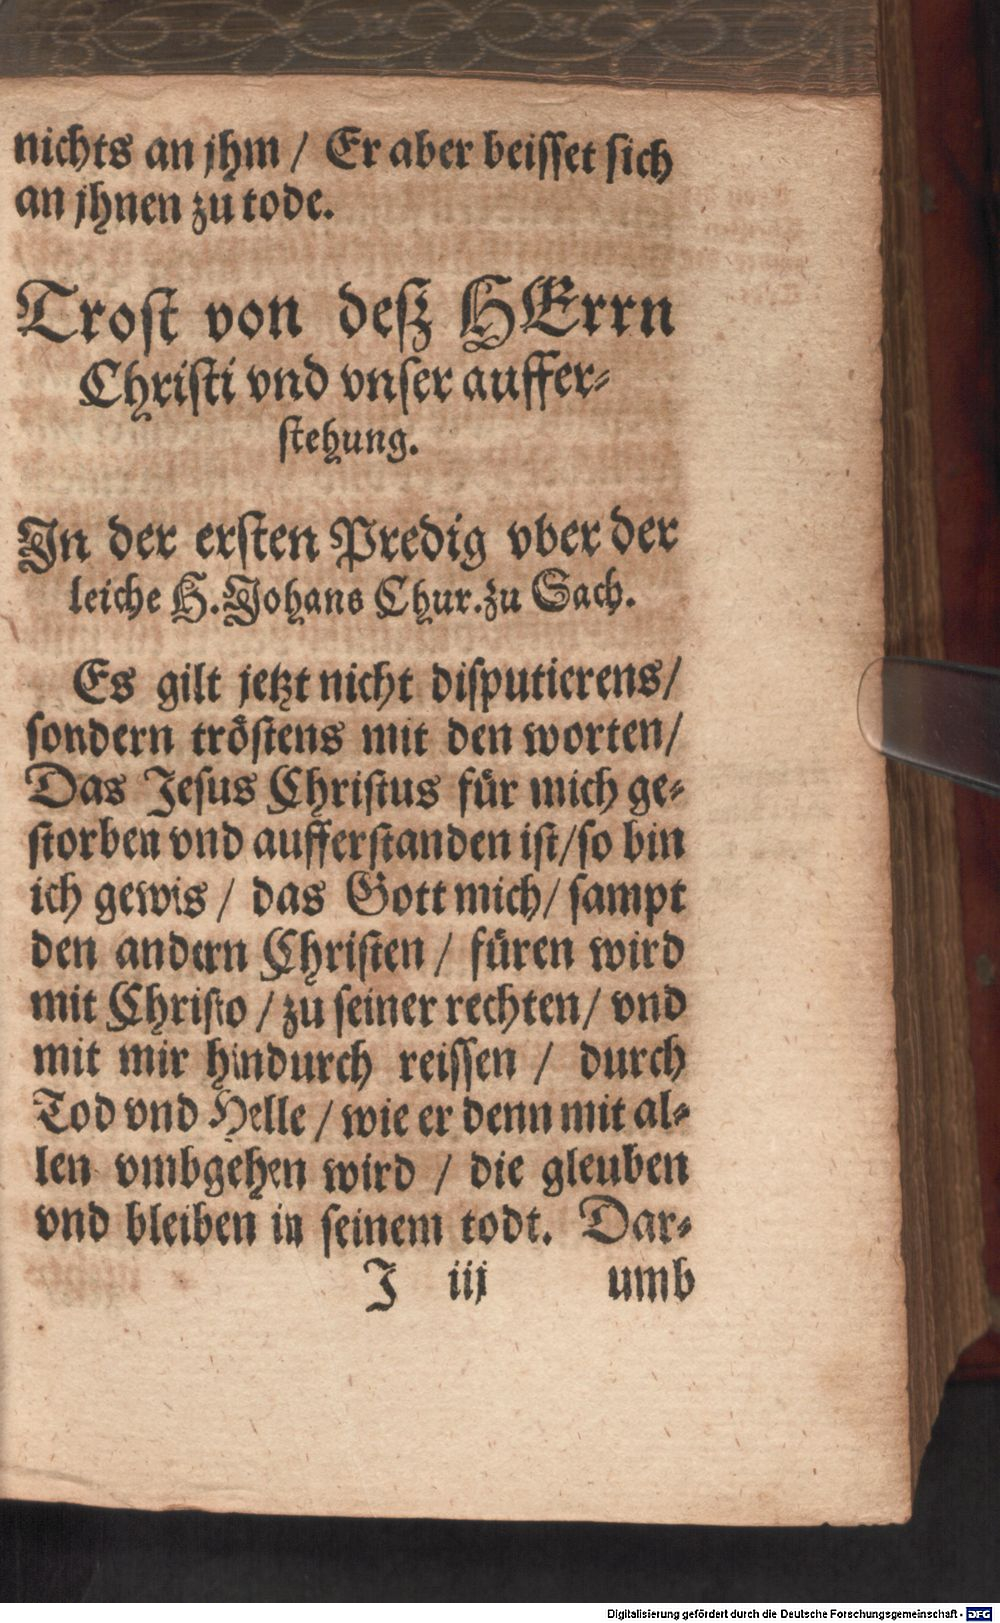 nichts an jhm / Er aber beisset sich
an jhnen zu tode.
Trost von desz HErrn
Christi vnd vnser auffer-
stehung.
In der ersten Predig vber der
leiche H. Johans Chur. zu Sach.
Es gilt jetzt nicht disputierens /
sondern tröstens mit den worten /
Das Jesus Christus für mich ge-
storben vnd aufferstanden ist / so bin
ich gewis / das Gott mich / sampt
den andern Christen / füren wird
mit Christo / zu seiner rechten / vnd
mit mir hindurch reissen / durch
Tod vnd Helle / wie er denn mit al-
len vmbgehen wird / die gleuben
vnd bleiben in seinem todt. Dar-
J iij umb
Digitalisierung gefördert durch die Deutsche Forschungsgemeinschaft - DFG